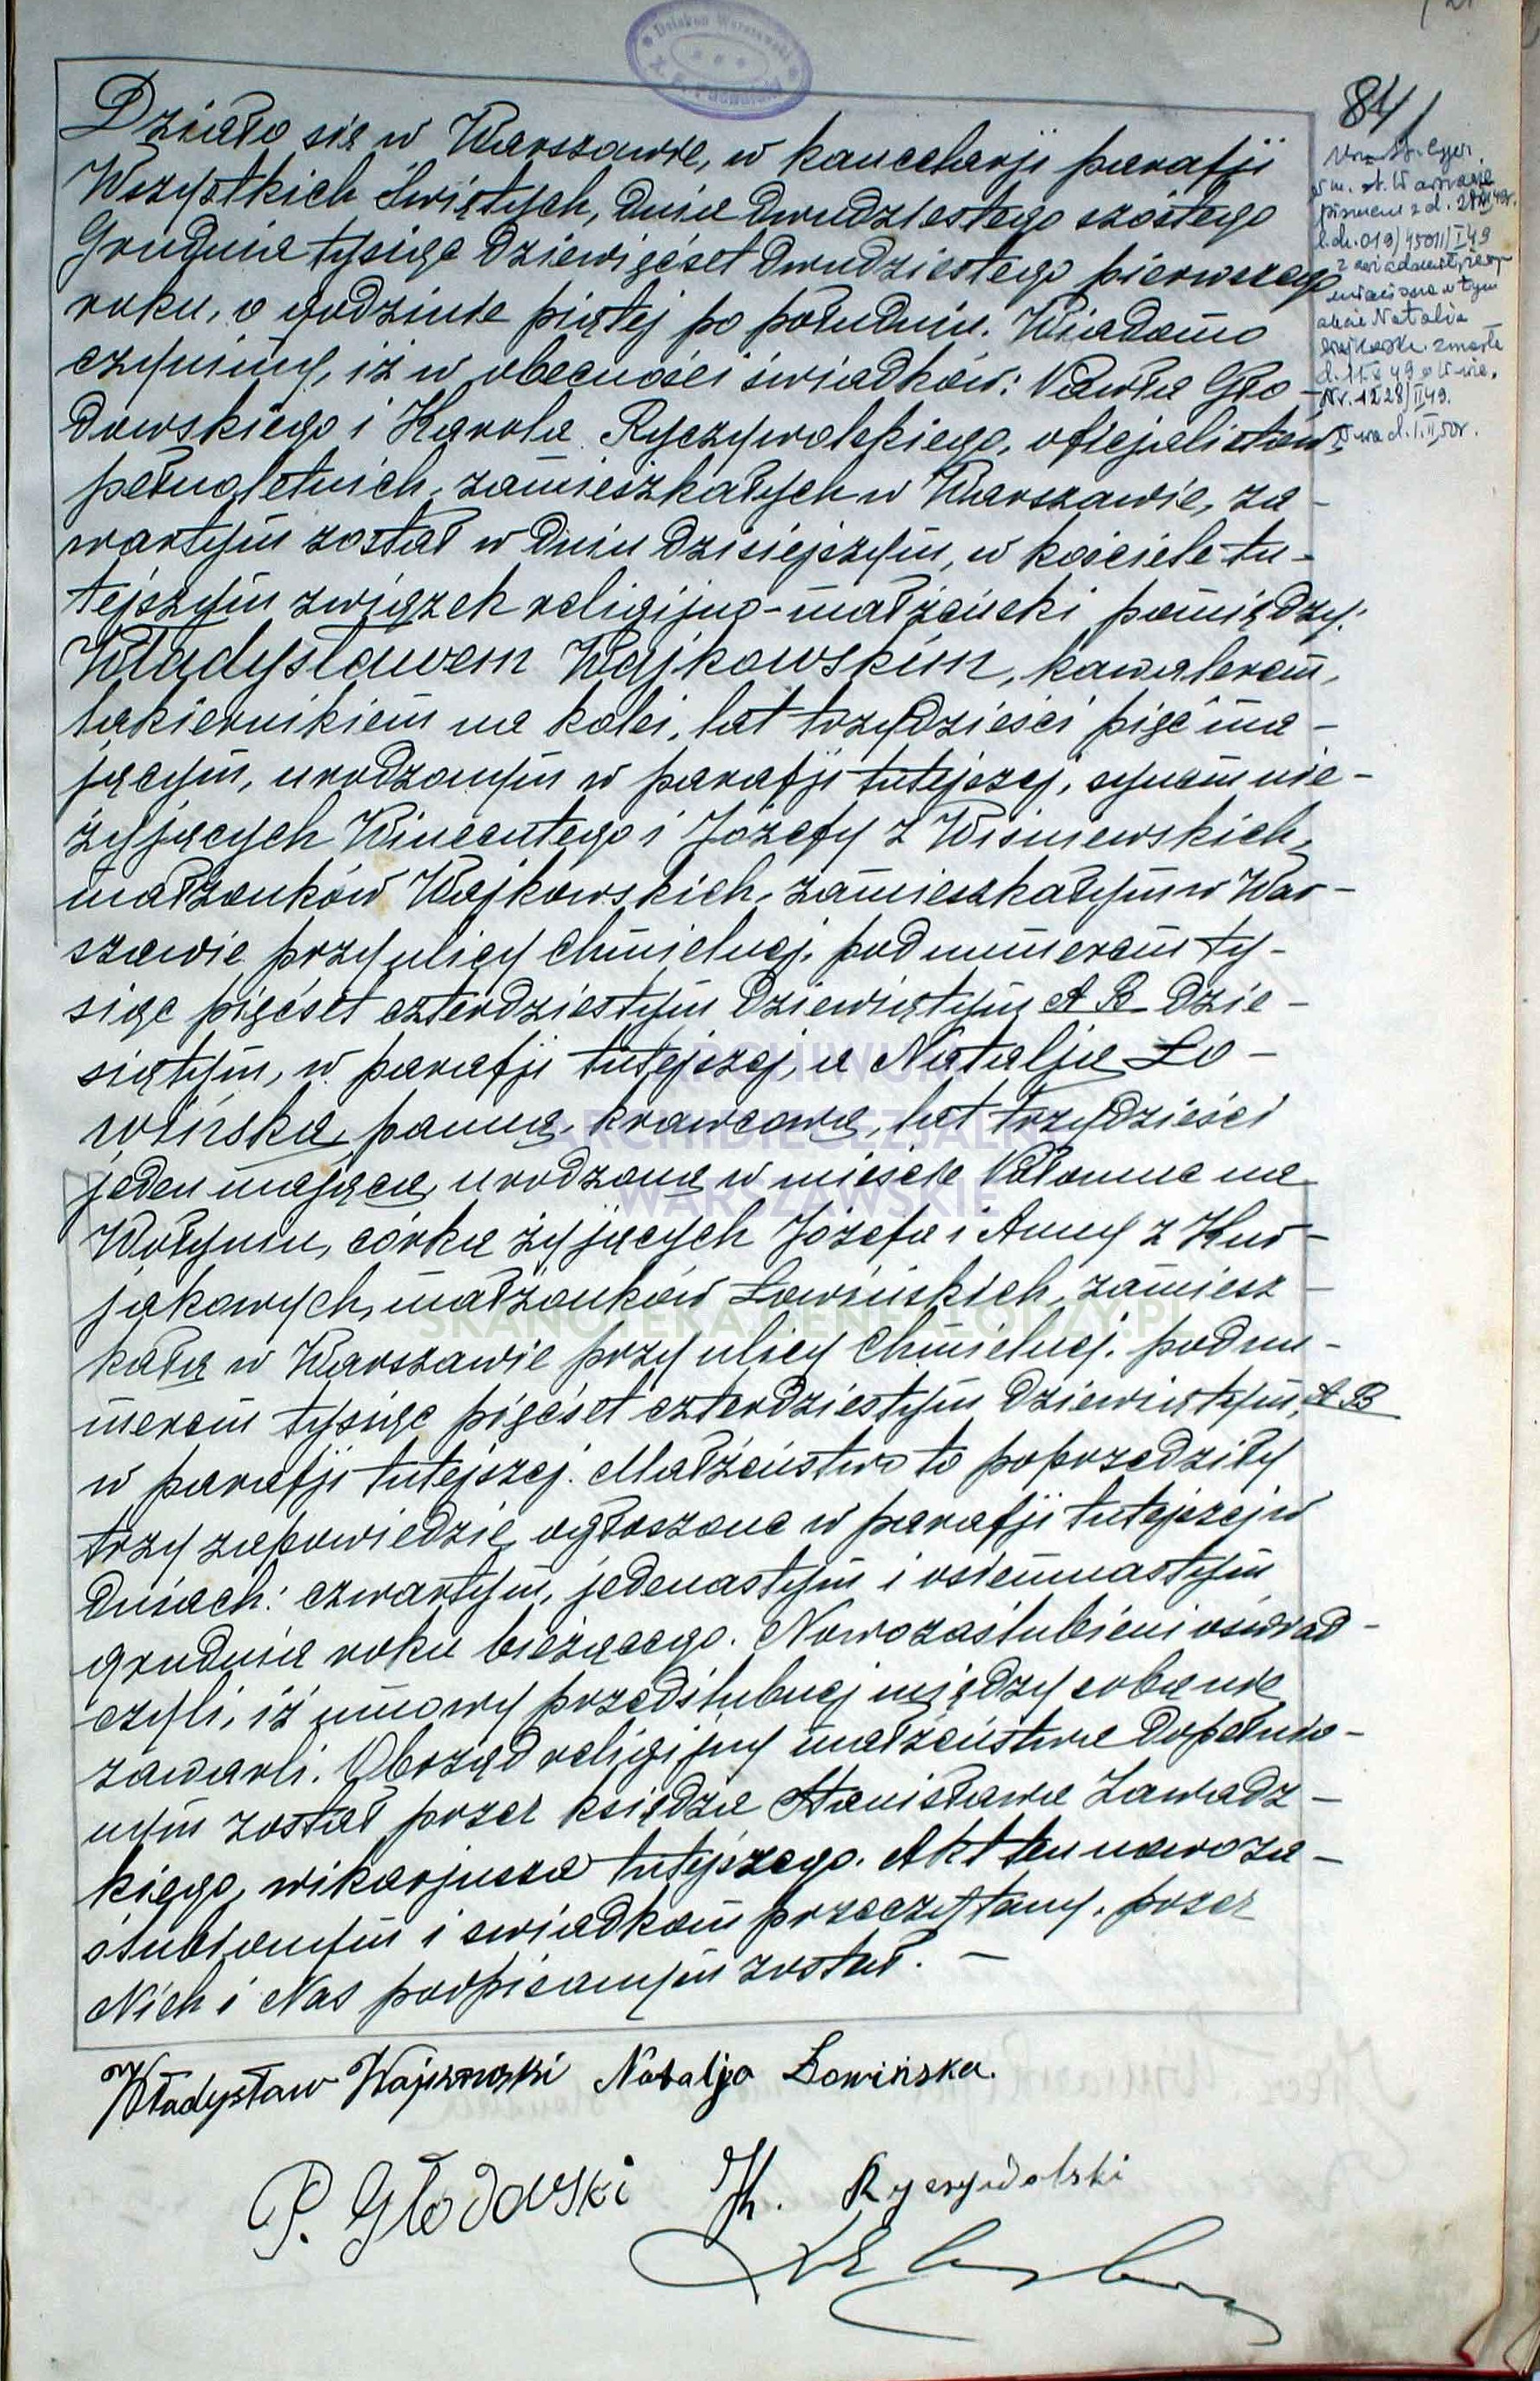 Dziekan Warszawski
84
Działo się w Warszawie, w kancelarji parafji
Wszystkich Świętych, dnia dwudziestego szóstego
Grudnia tysiąc dziewięćset dwudziestego pierwszego
roku, o godzinie piątej po południu. Wiadomo
czynimy, iż w obecności świadków: Pawła Gło-
dowskiego i Karola Ryczywolskiego, oficjalistów,
pełnoletnich, zamieszkałych w Warszawie, za-
wartym został w dniu dzisiejszym, w kościele tu-
tejszym związek religijno-małżeński pomiędzy:
Władysławem Wajkowskim, kawalerem,
lakiernikiem na kolei, lat trzydzieści pięć ma-
jącym, urodzonym w parafji tutejszej, synem nie-
żyjących Wincentego i Józefy z Wiśniewskich,
małżonków Wajkowskich, zamieszkałym w War-
szawie przy ulicy Chmielnej, pod numerem ty-
siąc pięćset czterdziestym dziewiątym A B dzie-
siątym, w parafji tutejszej, a Natalją Ło-
wińską, panną, krawcową, lat trzydzieści
jeden mającą, urodzoną w mieście Połonne na
Wołyniu, córką żyjących Józefa i Anny z Kur-
jakowych, małżonków Łowińskich, zamiesz-
kałą w Warszawie przy ulicy Chmielnej, pod nu-
merem tysiąc pięćset czterdziestym dziewiątym, A B
w parafji tutejszej. Małżeństwo to poprzedziły
trzy zapowiedzie, ogłoszone w parafji tutejszej w
dniach: czwartym, jedenastym i osiemnastym
grudnia roku bieżącego. Nowozaślubieni oświad-
czyli, iż umowy przedślubnej między sobą nie
zawarli. Obrząd religijny małżeństwa dopełnio-
nym został przez księdza Stanisława Zawadz-
kiego, wikarjusza tutejszego. Akt ten nowoza-
ślubionym i świadkom przeczytany, przez
Nich i Nas podpisanym został. —
w m. st. Warszawie
pismem z d.
l.dz. 019/45011/I 49
akcie Natalia
zmarła
Nr. 1228/II 49.
Władysław Wajkowski Natalja Łowińska.
P. Głodowski K. Ryczywolski
ARCHIWUM
ARCHIDIECEZJALNE
WARSZAWSKIE
SKANOTEKA.GENEALODZY.PL